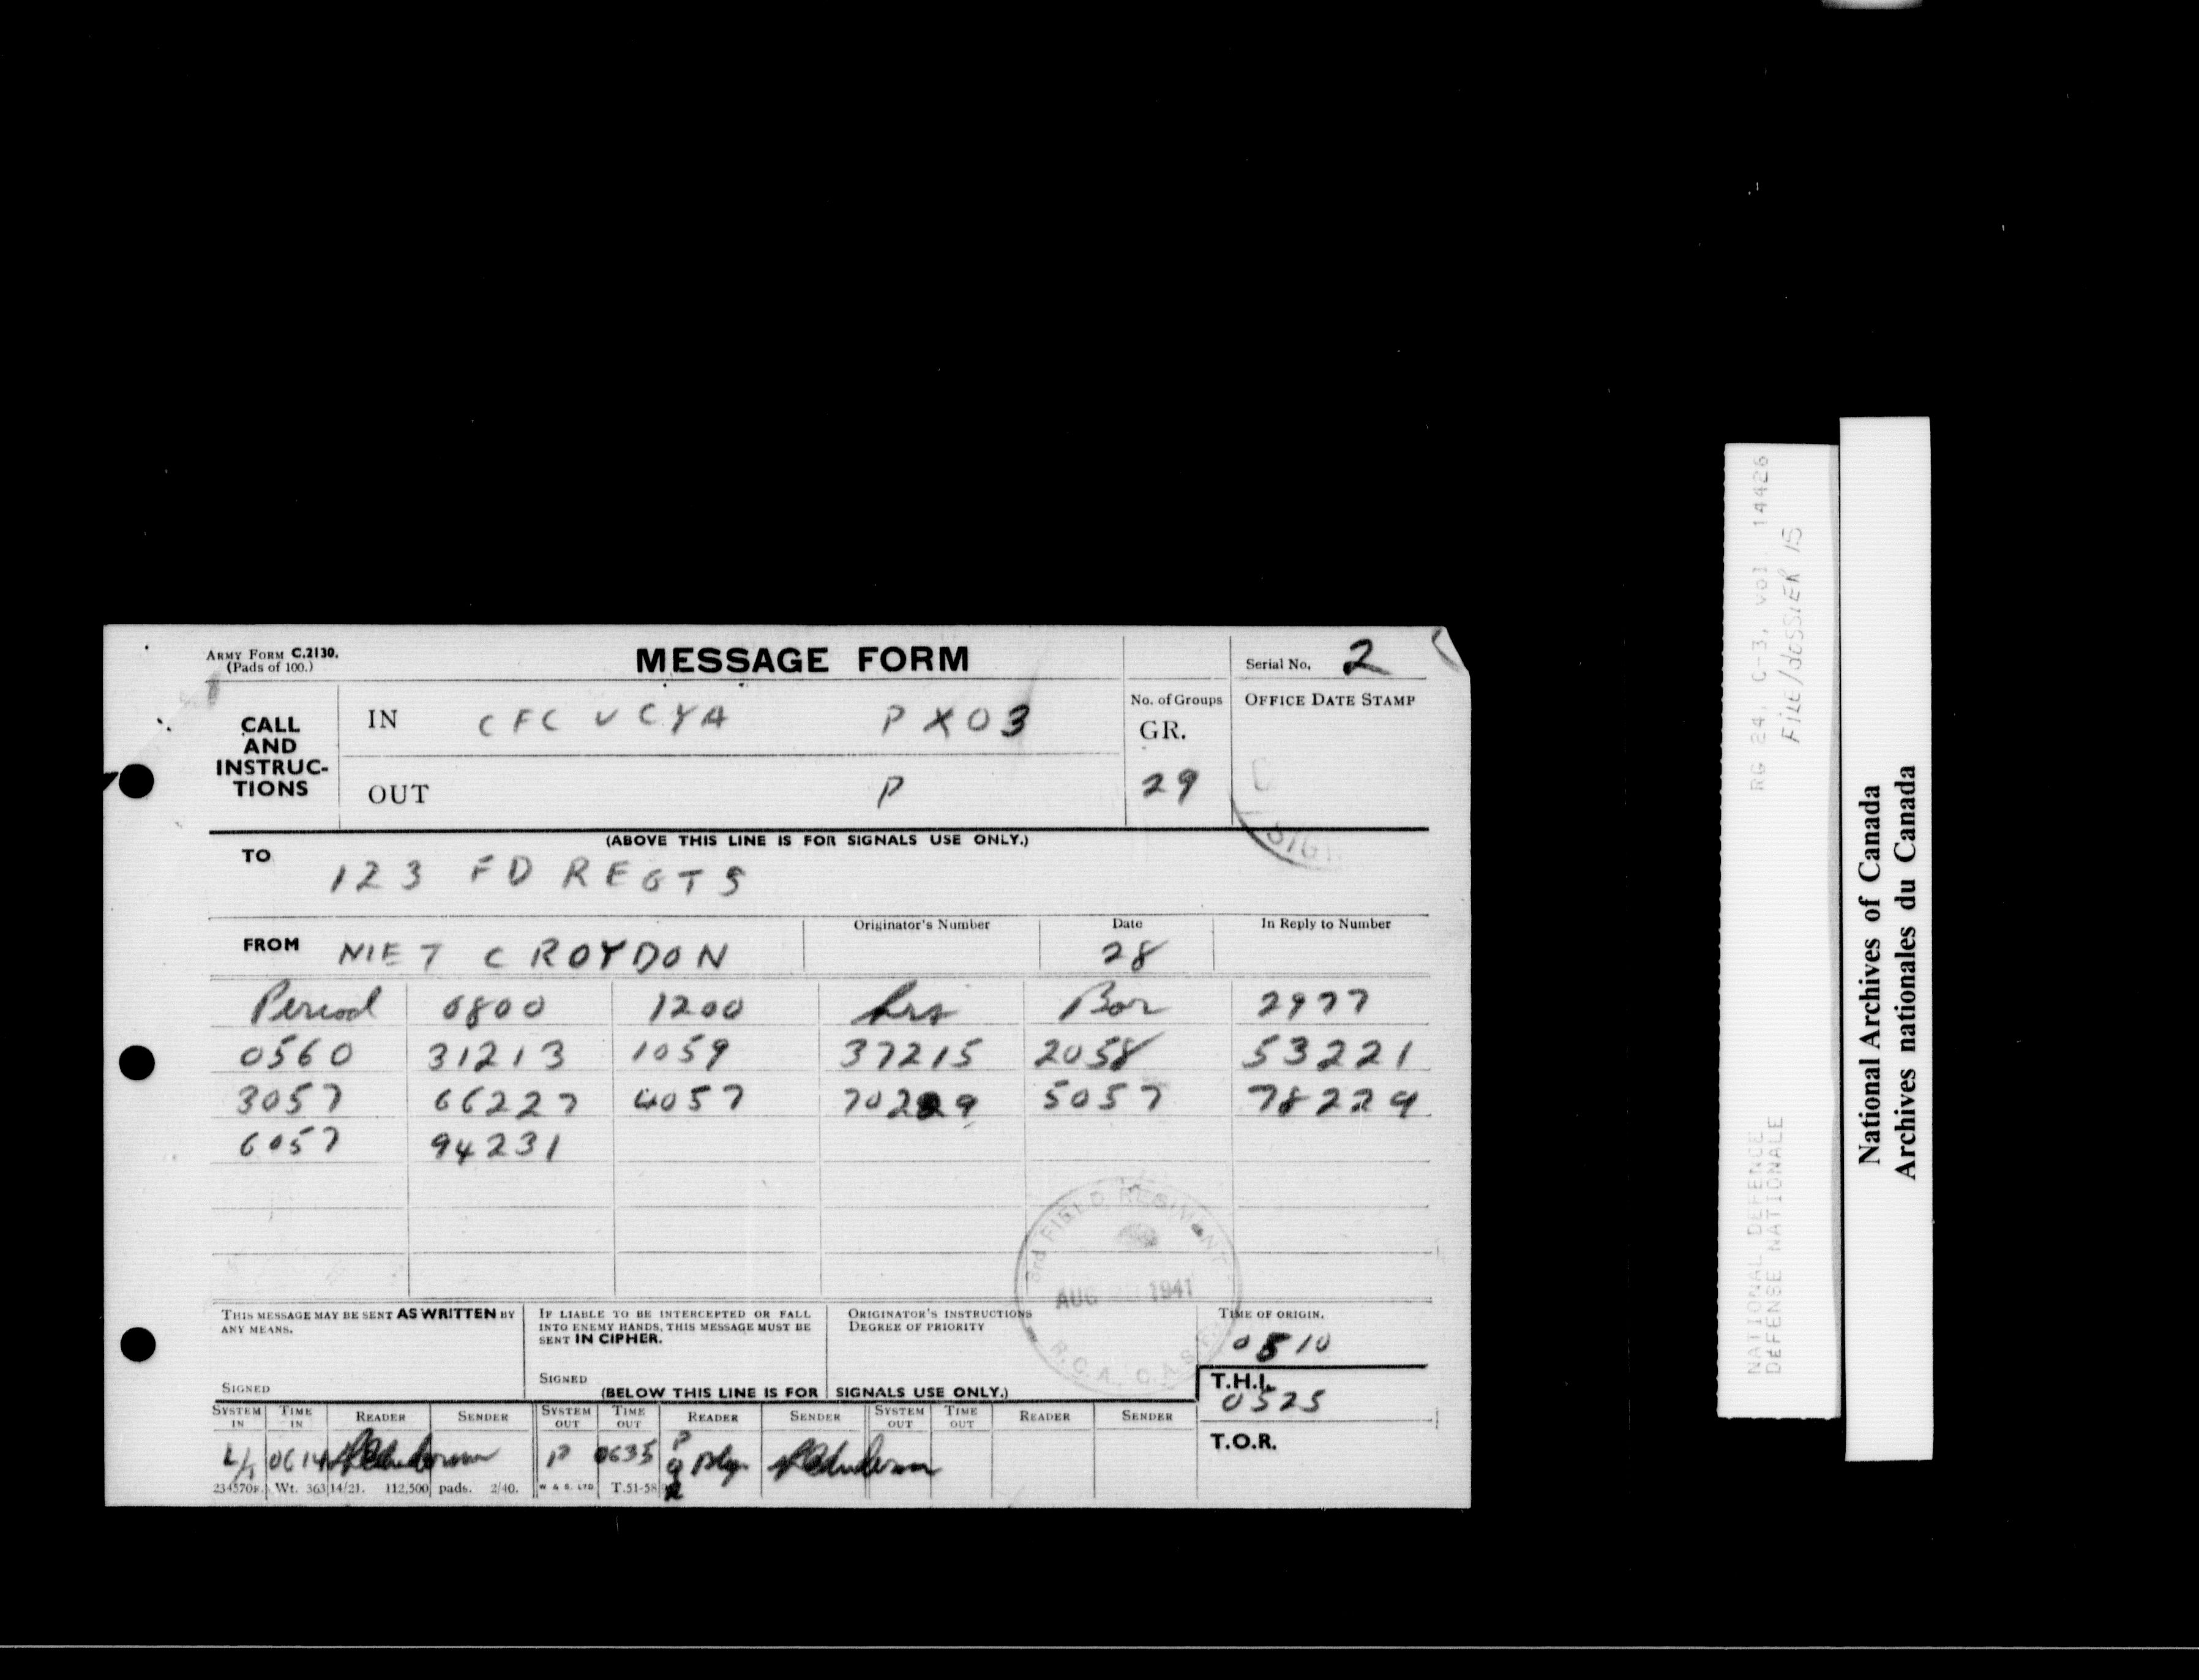 ARMY FORM C.2130.
(Pads of 100.)
MESSAGE FORM
Serial No. 2
CALL AND INSTRUC-TIONS
IN CFC V CYA P X03
OUT P
No. of Groups
GR.
29
OFFICE DATE STAMP
SIG
(ABOVE THIS LINE IS FOR SIGNALS USE ONLY.)
TO 123 FD REGTS
FROM MET CROYDON
Originator's Number
Date
28
In Reply to Number
Period 0800 1200 hrs Bar 2977
0560 31213 1059 37215 2058 53221
3057 66227 4057 70229 5057 78229
6057 94231
3rd FIELD REGIMENT
AUG 1941
R.C.A., C.A.S.F.
THIS MESSAGE MAY BE SENT AS WRITTEN BY ANY MEANS.
SIGNED
IF LIABLE TO BE INTERCEPTED OR FALL INTO ENEMY HANDS, THIS MESSAGE MUST BE SENT IN CIPHER.
SIGNED
ORIGINATOR'S INSTRUCTIONS
DEGREE OF PRIORITY
TIME OF ORIGIN.
0510
(BELOW THIS LINE IS FOR SIGNALS USE ONLY.)
T.H.I.
0525
T.O.R.
SYSTEM IN TIME IN READER SENDER SYSTEM OUT TIME OUT READER SENDER SYSTEM OUT TIME OUT READER SENDER
L/T 0614 P 0635
Wt. 36314/21. 112,500 pads. 2/40. W & S. LTD. T.51-58
RG 24, C-3, vol. 14426
FILE/dOSSIER 15
NATIONAL DEFENCE
DEFENSE NATIONALE
National Archives of Canada
Archives nationales du Canada